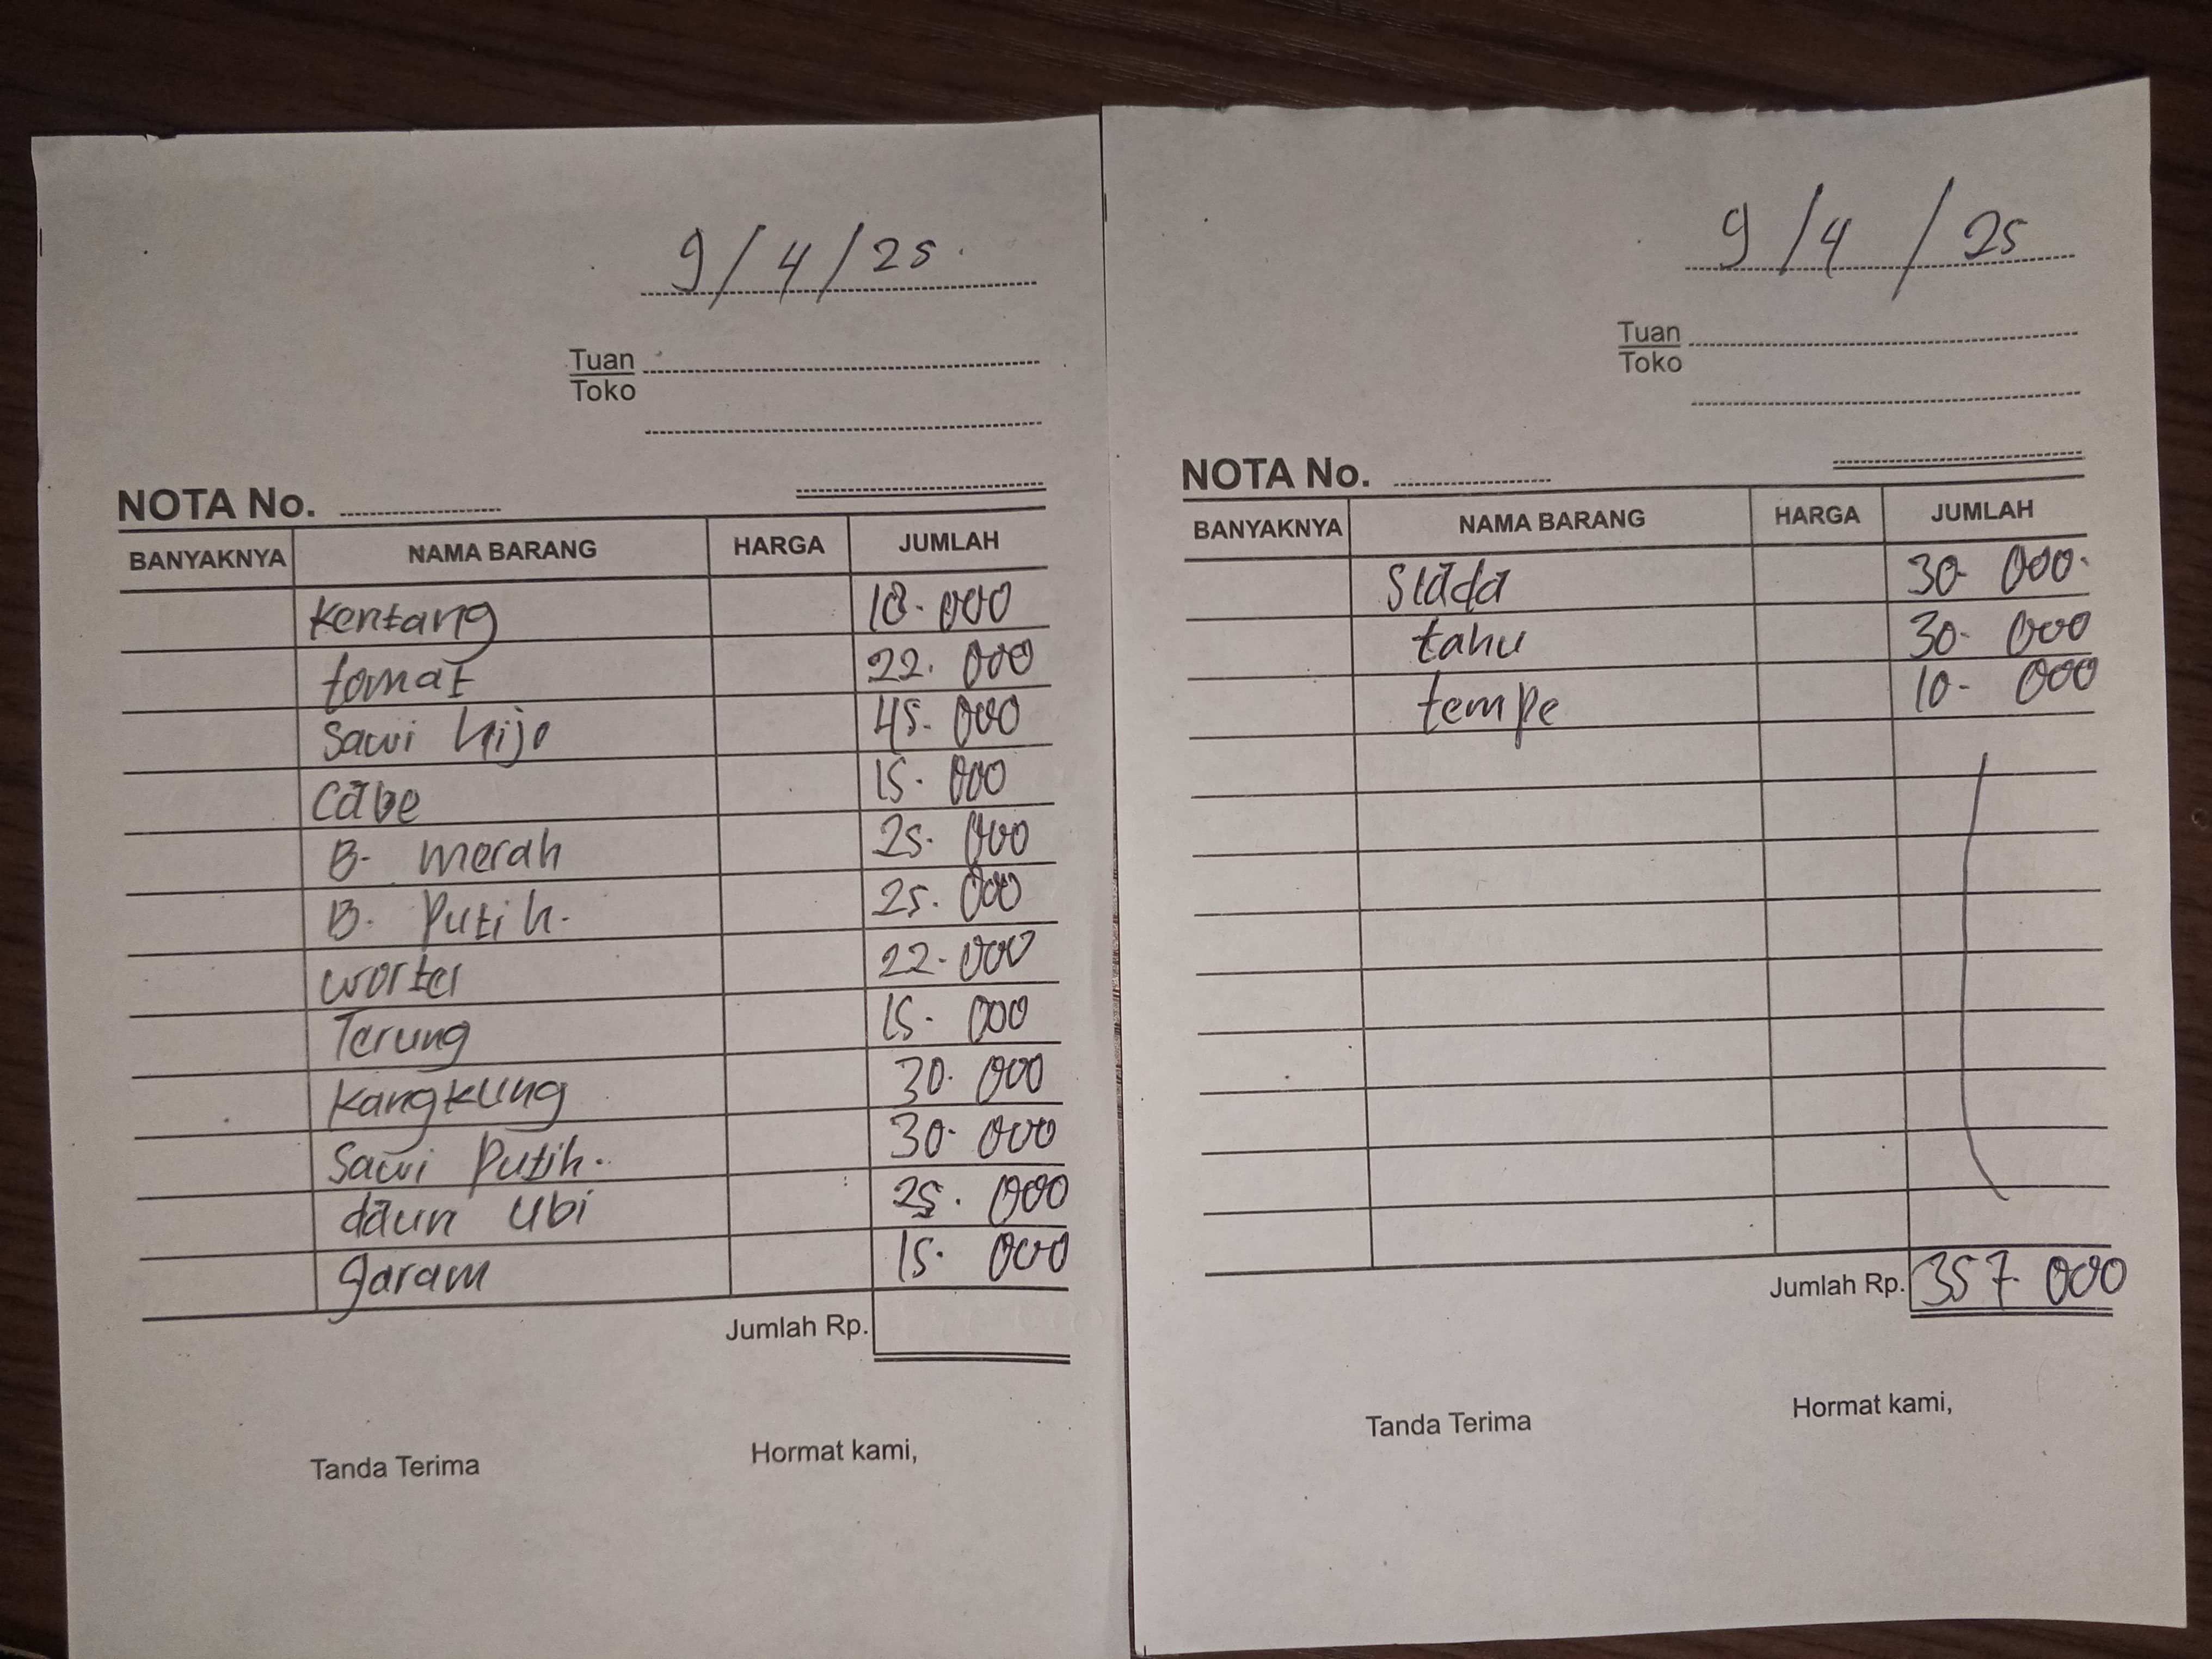 9/4/25.
Tuan
Toko
NOTA No.
BANYAKNYA NAMA BARANG HARGA JUMLAH
Kentang 18.000
tomat 22.000
Sawi hijo 45.000
Cabe 15.000
B. merah 25.000
B. Putih. 25.000
wortel 22.000
Terung 15.000
Kangkung 30.000
Sawi Putih. 30.000
daun ubi 25.000
garam 15.000
Jumlah Rp.
Tanda Terima Hormat kami,
9/4/25
Tuan
Toko
NOTA No.
BANYAKNYA NAMA BARANG HARGA JUMLAH
Slada 30.000.
tahu 30.000
tempe 10.000
Jumlah Rp. 357.000
Tanda Terima Hormat kami,